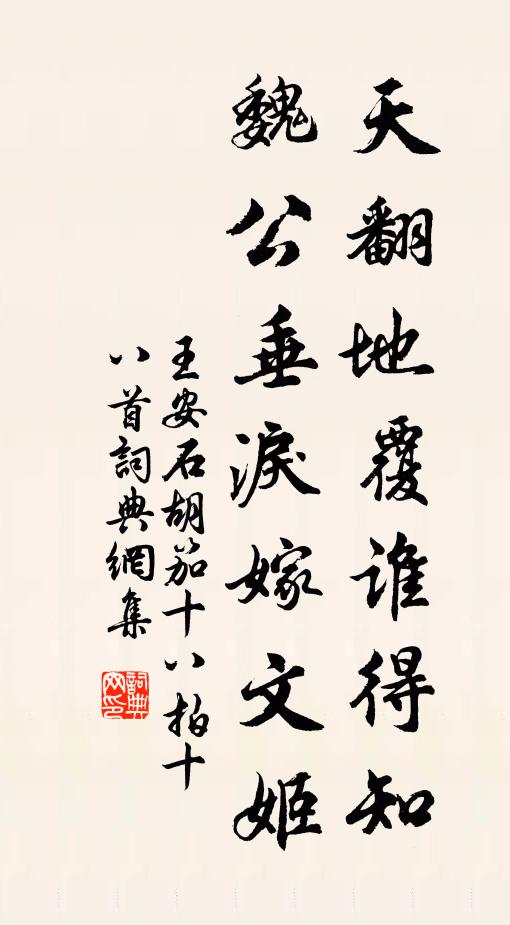 天翻地覆誰得知
魏公垂淚嫁文姬
王安石胡笳十八拍十
八首詞典網集
詞典网印